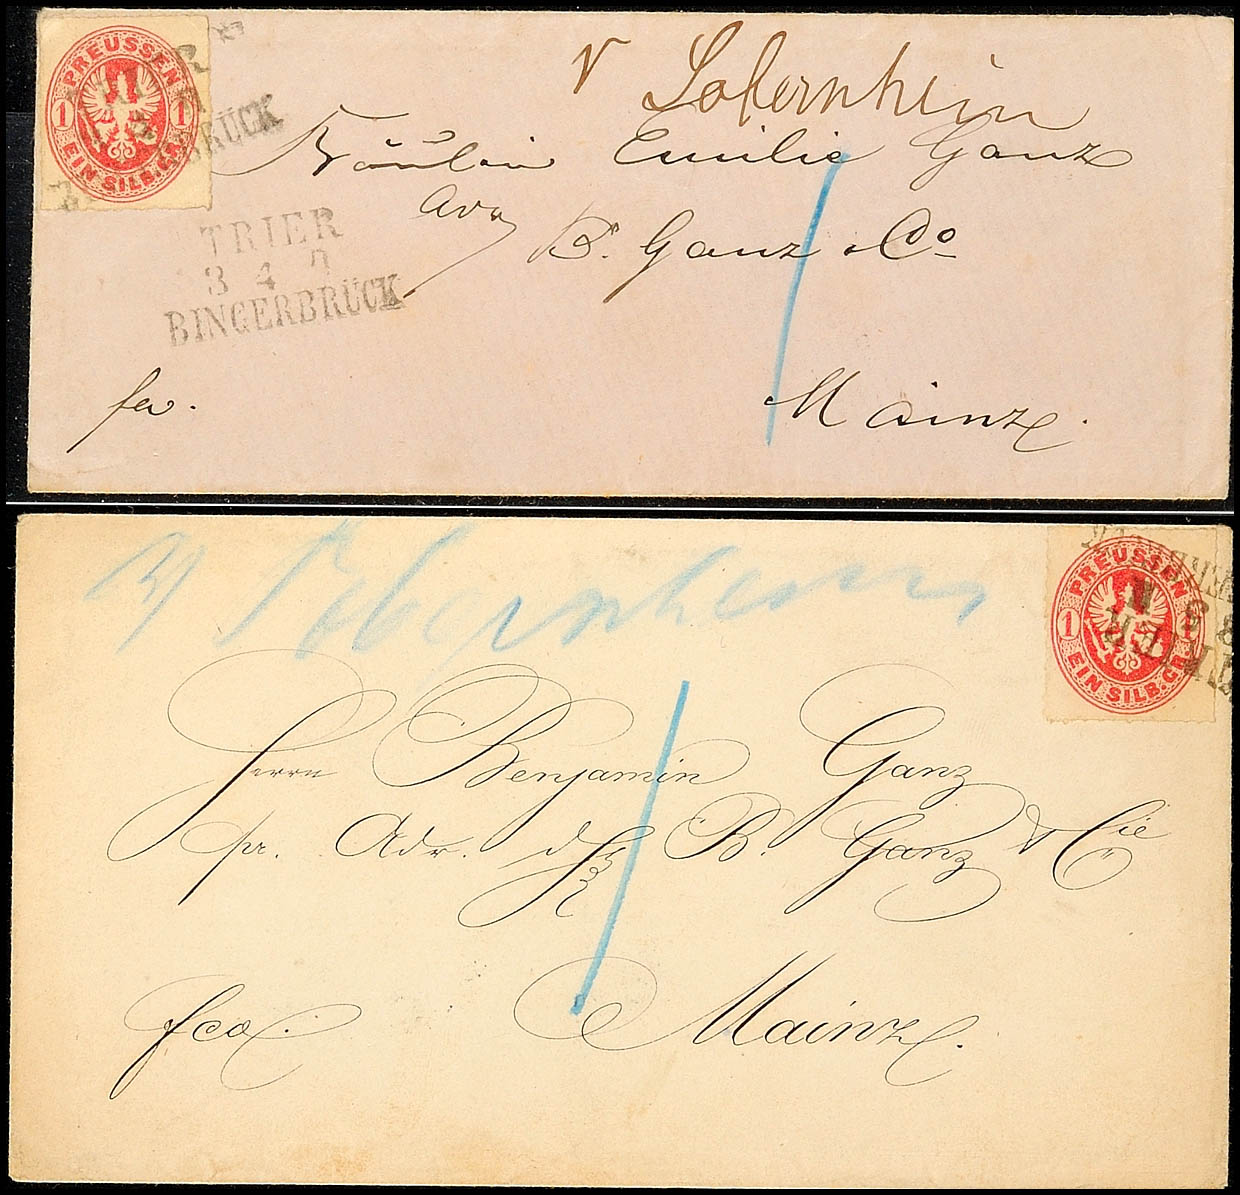 PREUSSEN
1 1
EIN SILB.GR.
BRÜCK
v Sobernheim
Fräulein Emilie Ganz
Adr
B. Ganz & Co
TRIER
3 4
BINGERBRÜCK
Mainz.
v Sobernheim
PREUSSEN
1 1
EIN SILB.GR.
TRIER
Herrn Benjamin Ganz
pr. Adr. B. Ganz & Cie
fco. Mainz.